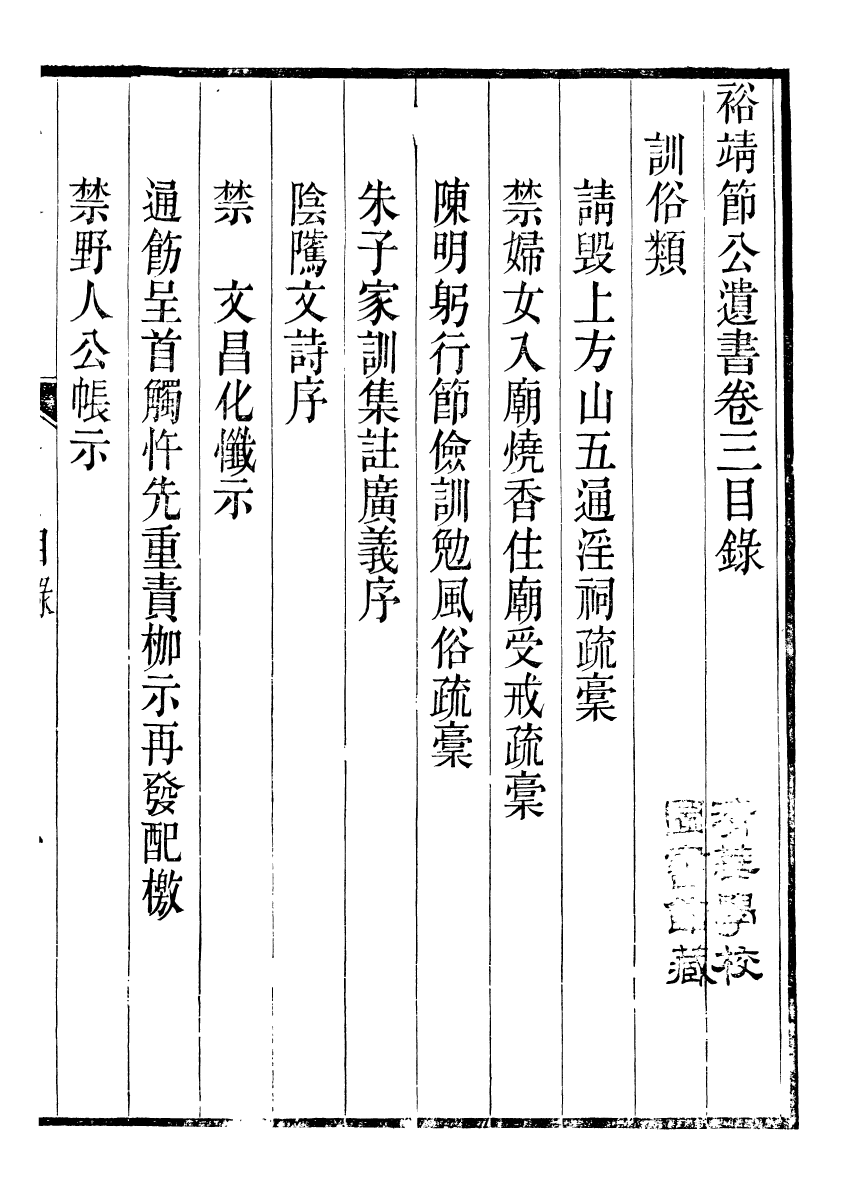 裕靖節公遺書卷三目錄
訓俗類
請毁上方山五通淫祠疏稾
禁婦女入廟燒香住廟受戒疏稾
陳明躬行節儉訓勉風俗疏稾
朱子家訓集註廣義序
陰隲文詩序
禁　文昌化懺示
通飭呈首觸忤先重責枷示再發配檄
禁野人公帳示
目錄
清華學校
圖書館藏